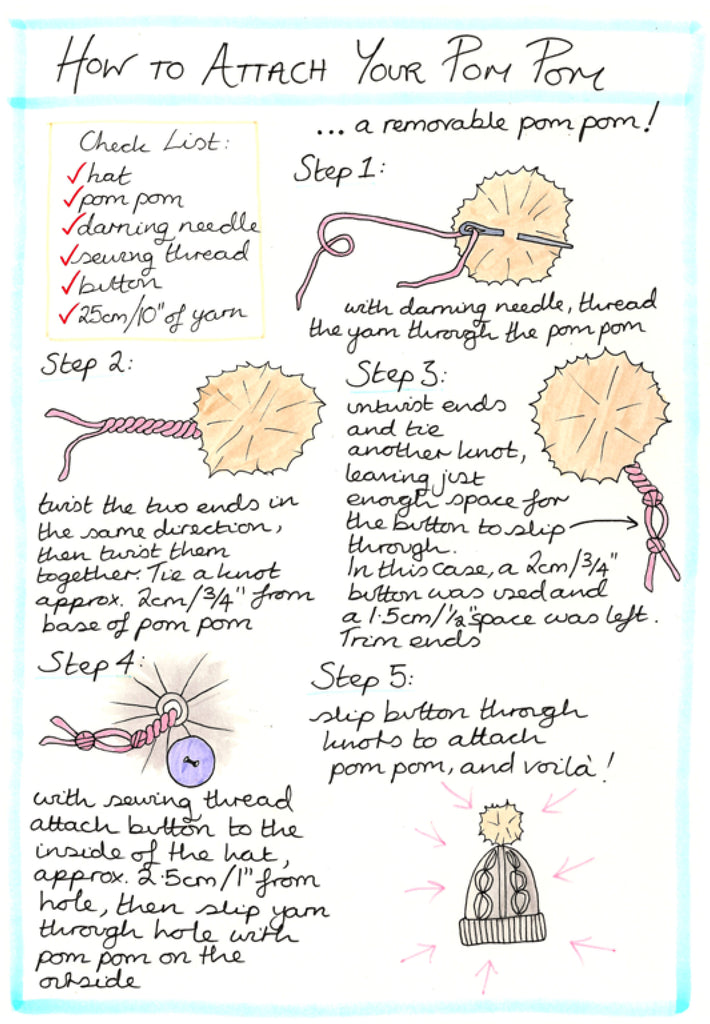 How to Attach Your Pom Pom
... a removable pom pom!
Check List:
✓hat
✓pom pom
✓darning needle
✓sewing thread
✓button
✓25cm/10" of yarn
Step 1:
with darning needle, thread
the yarn through the pom pom
Step 2:
twist the two ends in
the same direction,
then twist them
together. Tie a knot
approx. 2cm/3/4" from
base of pom pom
Step 3:
untwist ends
and tie
another knot,
leaving just
enough space for
the button to slip
through.
In this case, a 2cm/3/4"
button was used and
a 1.5cm/1/2" space was left.
Trim ends
Step 4:
with sewing thread
attach button to the
inside of the hat,
approx. 2.5cm/1" from
hole, then slip yarn
through hole with
pom pom on the
outside
Step 5:
slip button through
knots to attach
pom pom, and voilà!